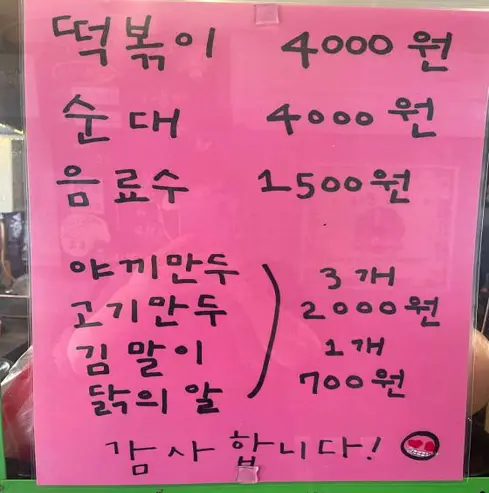 떡볶이 4000원
순대 4000원
음료수 1500원
야끼만두 3개
고기만두 2000원
김말이 1개
닭의 알 700원
감사합니다!